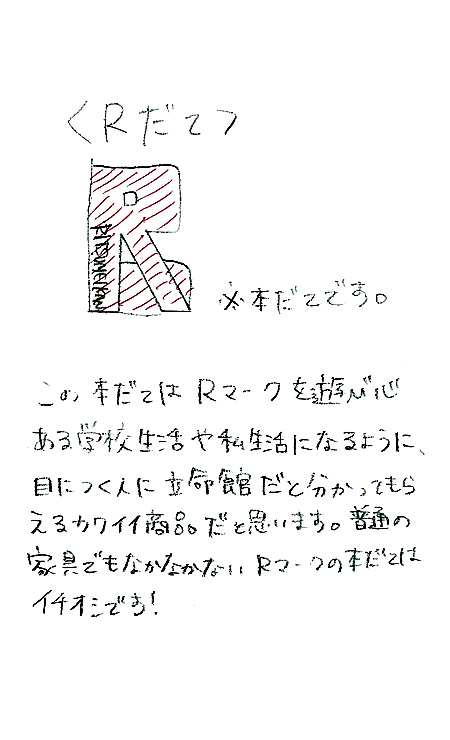 〈Rだて〉
RITSUMEIKAN
※本だてです。
この本だてはRマークを遊び心
ある学校生活や私生活になるように、
目につく人に立命館だと分かってもら
えるカワイイ商品だと思います。普通の
家具でもなかなかないRマークの本だては
イチオシです!